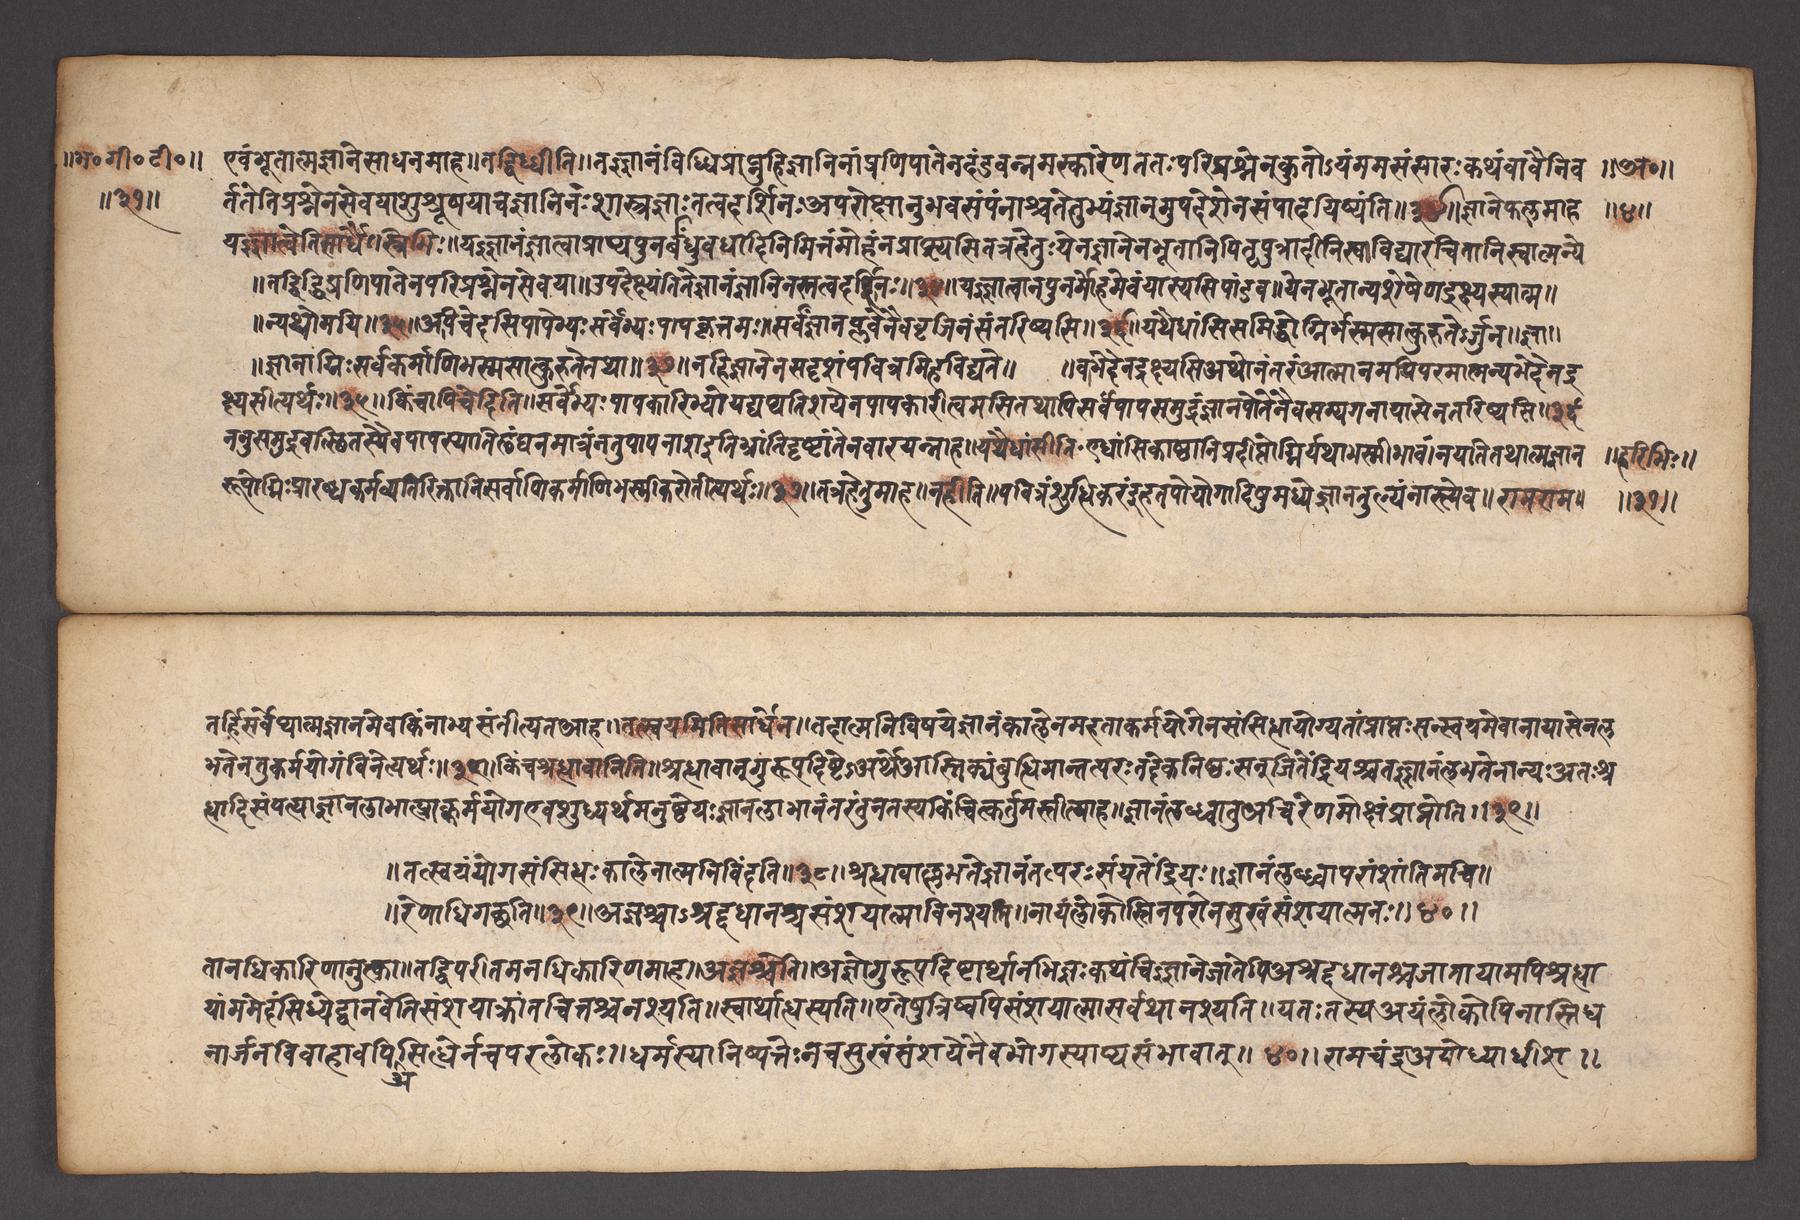 ॥भ०गी०टी०॥ एवंभूतात्मज्ञानेसाधनमाह॥तद्विध्धीति॥तज्ज्ञानंविध्धिप्राप्नुहिज्ञानिनांप्रणिपातेनदंडवन्नमस्कारेणततःपरिप्रश्नेनकुतोऽयंममसंसारःकथंवावैनिव ॥अ०॥
॥३१॥ र्ततेतिप्रश्नेनसेवयाशुश्रूषयाचज्ञानिनःशास्त्रज्ञाःतत्वदर्शिनःअपरोक्षानुभवसंपंनाश्चतेतुभ्यंज्ञानमुपदेशेनसंपादयिष्यंति॥३४॥ज्ञानेफलमाह ॥४॥
यज्ज्ञात्वेतिसार्धैस्त्रिभिः॥यज्ज्ञानंज्ञात्वाप्राप्यपुनर्बंधुवधादिनिमित्तंमोहंनप्राप्स्यसितत्रहेतुःयेनज्ञानेनभूतानिपितृपुत्रादीनिस्वाविद्यारचितानिस्वात्मन्ये
॥तद्विद्धिप्रणिपातेनपरिप्रश्नेनसेवया॥उपदेक्ष्यंतितेज्ञानंज्ञानिनस्तत्वदर्शिनः॥३४॥यज्ज्ञात्वानपुनर्मोहमेवंयास्यसिपांडव॥येनभूतान्यशेषेणद्रक्ष्यस्यात्म॥
॥न्यथोमयि॥३५॥अपिचेदसिपापेभ्यःसर्वेभ्यःपापकृत्तमः॥सर्वंज्ञानप्लवेनैववृजिनंसंतरिष्यसि॥३६॥यथैधांसिसमिद्धोग्निर्भस्मसात्कुरुतेर्जुन॥ज्ञा॥
॥ज्ञानाग्निःसर्वकर्माणिभस्मसात्कुरुतेतथा॥३७॥नहिज्ञानेनसदृशंपवित्रमिहविद्यते॥ ॥वभेदेनद्रक्ष्यसिअथोनंतरंआत्मानमपिपरमात्मन्यभेदेनद्र
क्ष्यसीत्यर्थः॥३५॥किंचापिचेदिति॥सर्वेभ्यःपापकारिभ्योयद्यप्यतिशयेनपापकारीत्वमसितथापिसर्वंपापसमुद्रंज्ञानपोतेनैवसम्यगनायासेनतरिष्यसि॥३६॥
ननुसमुद्रवत्स्थितस्यैवपापस्यातिलंघनमात्रंनतुपापनाशइतिभ्रांतिंदृष्टांतेनवारयन्नाह॥यथैधांसीति॥एधांसिकाष्ठानिप्रदीप्तोग्निर्यथाभस्मीभावंनयतितथात्मज्ञान ॥हरिभिः॥
रूपोग्निःप्रारब्धकर्मव्यतिरिक्तानिसर्वाणिकर्माणिभस्मीकरोतीत्यर्थः॥३७॥तत्रहेतुमाह॥नहीति॥पवित्रंशुद्धिकरंइहतपोयोगादिषुमध्येज्ञानतुल्यंनास्त्येव॥रामराम॥ ॥३१॥
तर्हिसर्वेप्यात्मज्ञानमेवकिंनाभ्यसंतीत्यतआह॥तत्स्वयमितिसार्धेन॥तदात्मनिविषयेज्ञानंकालेनमहताकर्मयोगेनसंसिद्धोयोग्यतांप्राप्तःसन्स्वयमेवानायासेनल
भतेनतुकर्मयोगंविनेत्यर्थः॥३८॥किंचश्रद्धावानिति॥श्रद्धावान्गुरूपदिष्टेऽअर्थेआस्तिक्यंबुद्धिमान्तत्परःतदेकनिष्ठःसतुजितेंद्रियश्चतज्ज्ञानंलभतेनान्यःअतःश्र
द्धादिसंपत्याज्ञानलाभात्प्राक्कर्मयोगएवशुध्यर्थमनुष्ठेयःज्ञानलाभानंतरंतुनतस्यकिंचित्कर्तुमस्तीत्याह॥ज्ञानंलब्ध्वातुअचिरेणमोक्षंप्राप्नोति॥३९॥
॥तत्स्वयंयोगसंसिद्धःकालेनात्मनिविंदति॥३८॥श्रद्धावाल्लभतेज्ञानंतत्परःसंयतेंद्रियः॥ज्ञानंलब्ध्वापरांशांतिमचि॥
॥रेणाधिगछति॥३९॥अज्ञश्चाऽश्रद्दधानश्चसंशयात्माविनश्यति॥नायंलोकोस्तिनपरोनसुखंसंशयात्मनः॥४०॥
ज्ञानधिकारिणामुक्त्वा॥तद्विपरीतमनधिकारिणमाह॥अज्ञश्चेति॥अज्ञोगुरूपदिष्टार्थानभिज्ञःकथंचिज्ज्ञानेजातेपिअश्रद्दधानश्चजातायामपिश्रद्धा
यांममेदंसिध्येद्वानवेतिसंशयाक्रांतचित्तश्चनश्यति॥स्वार्थाद्भ्रस्यति॥एतेषुत्रिष्वपिसंशयात्मासर्वथानश्यति॥यतःतस्यअयंलोकोपिनास्तिध
नार्जनविवाहाद्यपिसिद्धेर्नचपरलोकः॥धर्मस्यानिष्पत्तेःनचसुखंसंशयेनैवभोगस्याप्यसंभावात्॥४०॥रामचंद्रअयोध्याधीश॥
अ